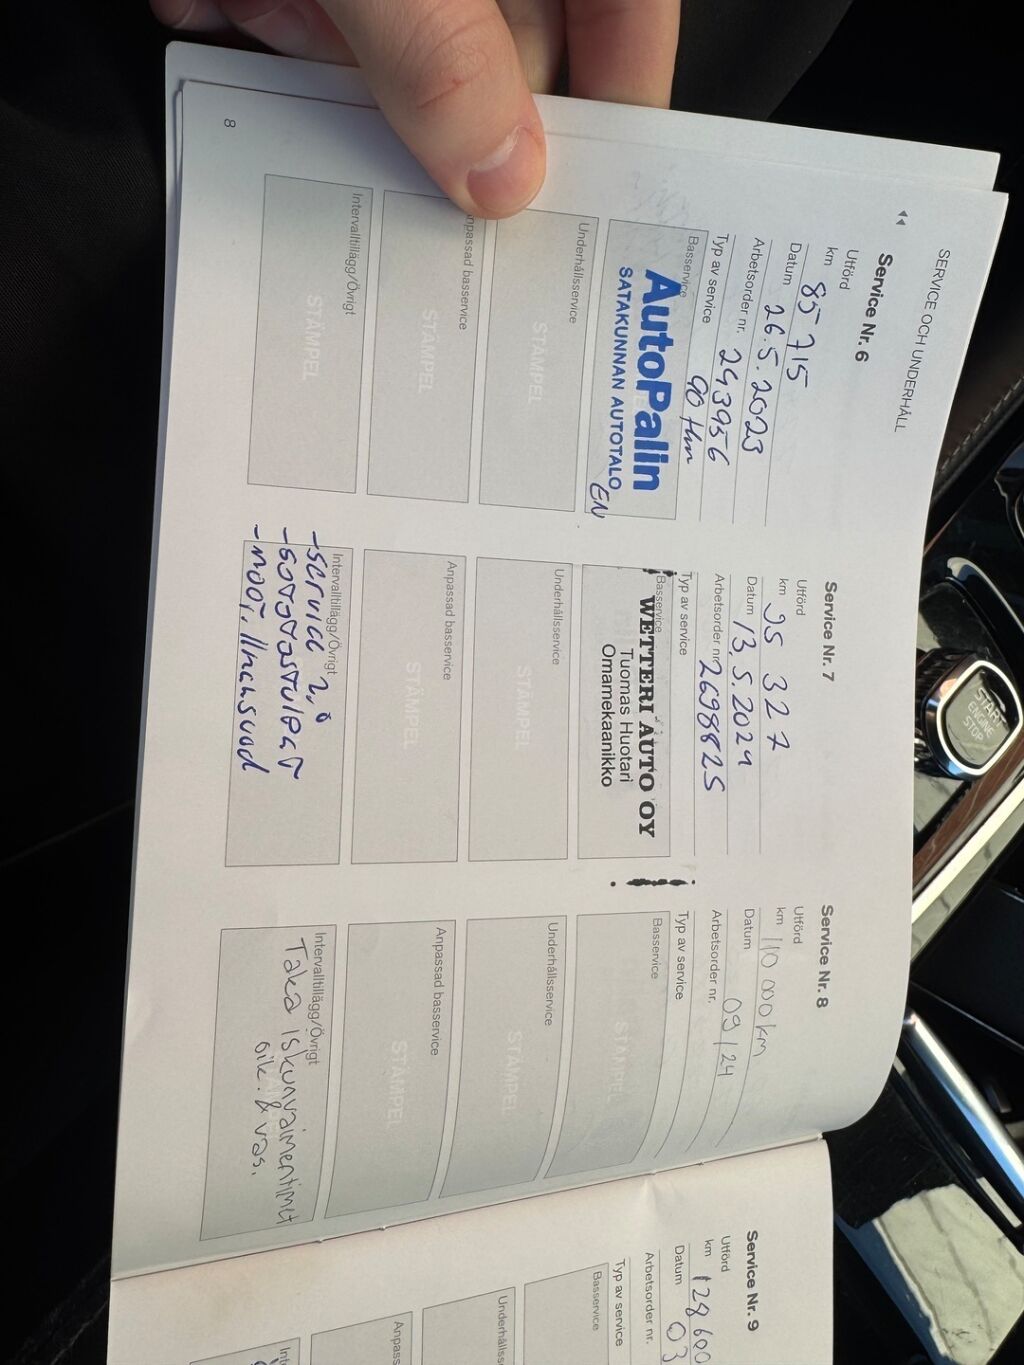 SERVICE OCH UNDERHÅLL
◂◂
Service Nr. 6
Utförd
km 85 715
Datum 26.5.2023
Arbetsorder nr. 243956
Typ av service 90 tkm
Basservice
AutoPalin
SATAKUNNAN AUTOTALO
EN
Underhållsservice
STÄMPEL
Anpassad basservice
STÄMPEL
Intervalltillägg/Övrigt
STÄMPEL
8
Service Nr. 7
Utförd
km 95 327
Datum 13.5.2024
Arbetsorder nr 2698825
Typ av service
Basservice
WETTERI AUTO OY
Tuomas Huotari
Omamekaanikko
Underhållsservice
STÄMPEL
Anpassad basservice
STÄMPEL
Intervalltillägg/Övrigt
-service 2,0
Service Nr. 8
Utförd
km 110 000 km
Datum 09/24
Arbetsorder nr.
Typ av service
Basservice
STÄMPEL
Underhållsservice
STÄMPEL
Anpassad basservice
STÄMPEL
Intervalltillägg/Övrigt
Taka iskunvaimentimet
oik. & vas.
Service Nr. 9
Utförd
km 128 600
Datum 03
Arbetsorder nr.
Typ av service
Basservice
Underhållss
Anpass
Int
START
ENGINE
STOP